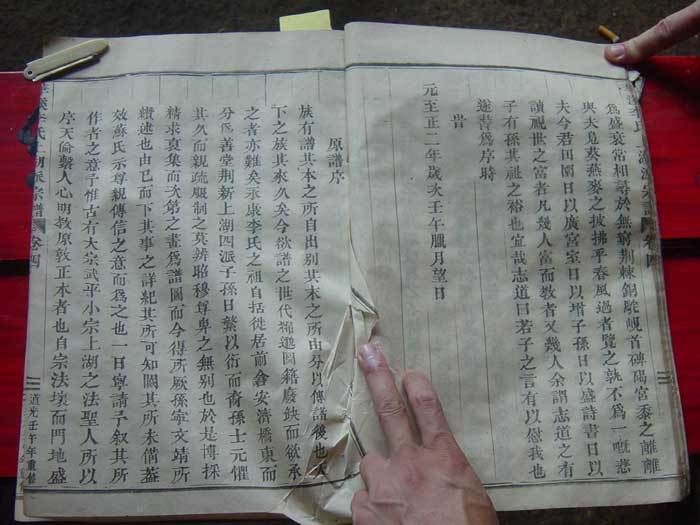 為盛衰常相尋於無窮荆棘銅駝峴首碑陽宮黍之離離
與夫兔葵燕麥之披拂乎春風過者覽之孰不為一嘅悲
夫今君田園日以廣宮室日以增子孫日以盛詩書日以
讀視世之富者凡幾人富而教者又幾人余謂志道之有
子有孫其祖之裕也宜哉志道曰若子之言有以儆我也
遂書為序時
旹
元至正二年歲次壬午臘月望日
原譜序
族有譜其本之所自出別其末之所由分以傳諸後也天
下之族其來久矣今欲譜之世代獮邈圖籍廢缺而欲承
之者亦難矣永康李氏之祖自括徙居前倉安濟橋東而
分爲善堂荆新上湖四派子孫日蘩以衍而裔孫士元懼
其久而親疏服制之莫辨昭穆尊卑之無別也於是博採
精求裒集而次第之畫爲譜圖而今得所厥孫寜文靖所
續述也由己而下其事之詳紀其所可知闕其所未備葢
效蘇氏示尊親傳信之意而爲之也一日寧請予叙其所
作者之意予惟古有大宗武平小宗上湖之法聖人所以
序天倫繫人心明教原敦正本者也自宗法壞而門地盛
氏上湖派宗譜 卷四
道光壬午年重脩